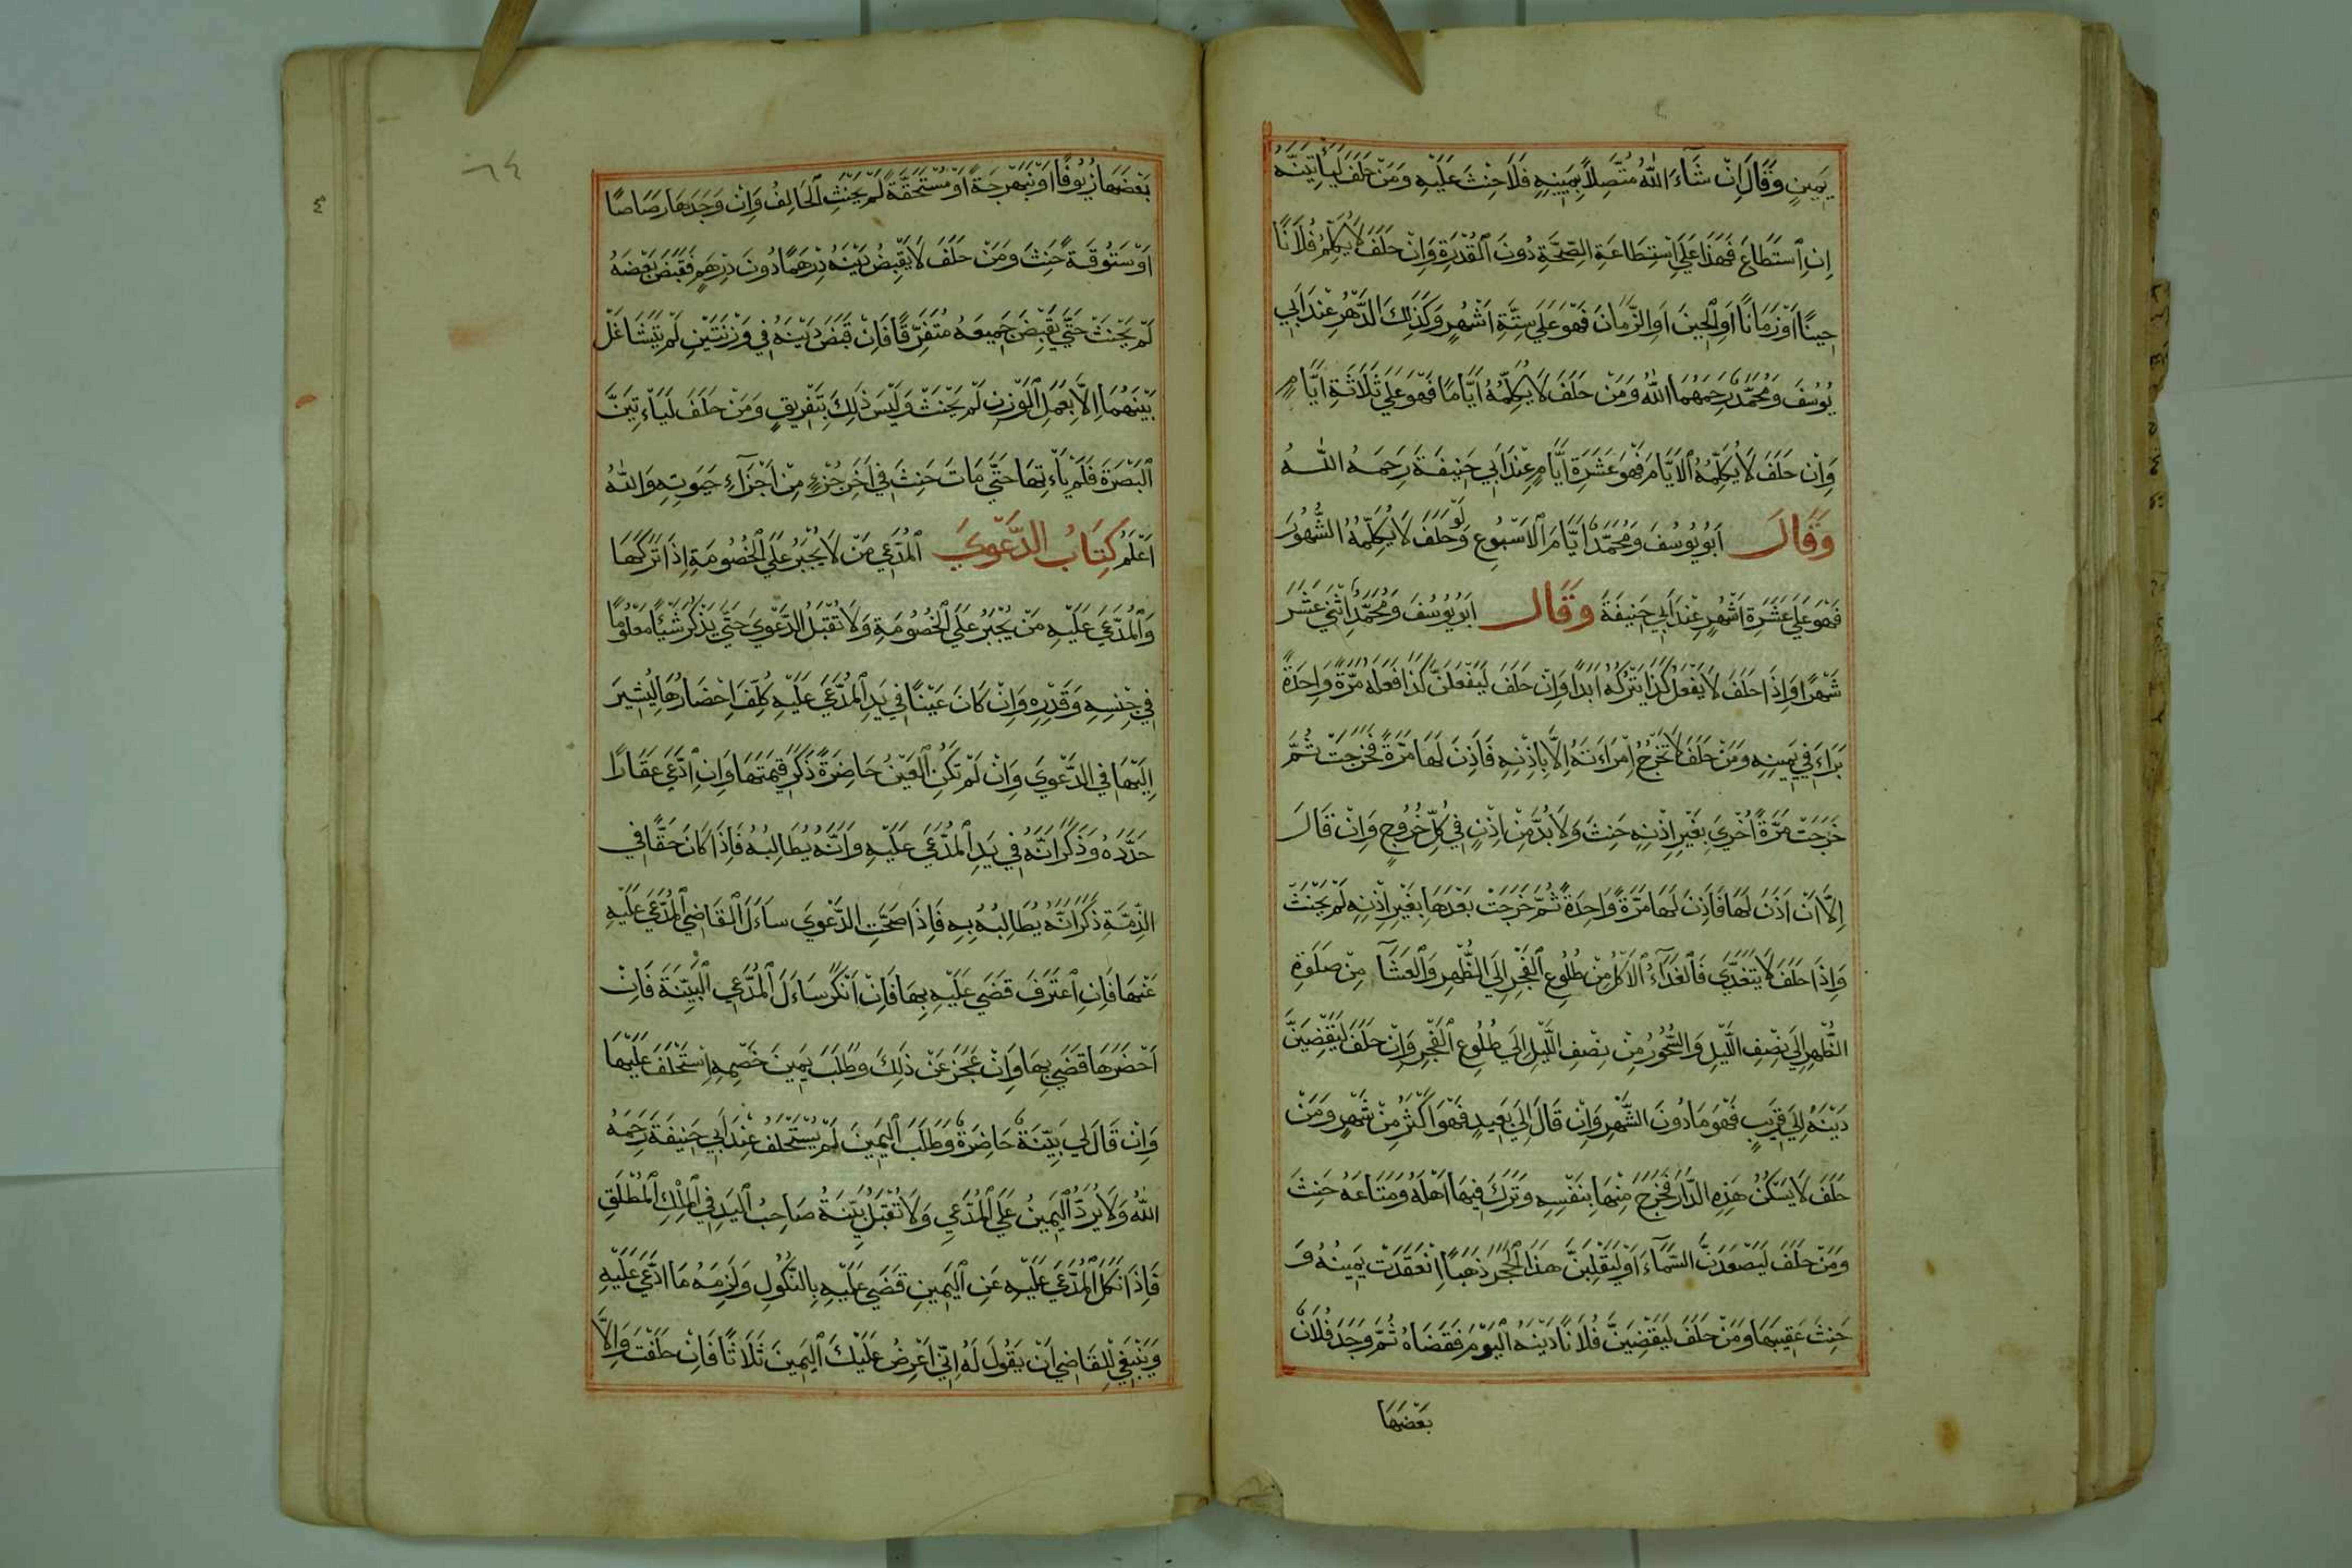 يَمِينٍ وَقَالَ اِنْ شَآءَ اللّٰهُ مُتَّصِلاً بِيَمِينِهِ فَلَا حِنْثَ عَلَيْهِ وَمَنْ حَلَفَ لَيَأتِيَنَّهُ
اِنِ اسْتَطَاعَ فَهَذَا عَلَي اِسْتِطَاعَةِ الصِّحَّةِ دُونَ الْقُدْرَةِ وَاِنْ حَلَفَ لَا يُكَلِّمُ فُلَانًا
حِينًا اَوْ زَمَانًا اَوِ الْحِينَ اَوِ الزَّمَانَ فَهْوَ عَلَي سِتَّةِ اَشْهُرٍ وَكَذَلِكَ الدَّهْرُ عِنْدَ اَبِي
يُوسُفَ وَمُحَمَّدٍ رَحِمَهُمَا اللّٰهُ وَمَنْ حَلَفَ لَا يُكَلِّمُهُ اَيَّامًا فَهْوَ عَلَي ثَلَاثَةِ اَيَّامٍ
وَاِنْ حَلَفَ لَا يُكَلِّمُهُ الْاَيَّامَ فَهْوَ عَشَرَةِ اَيَّامٍ عِنْدَ اَبِي حَنِيفَةَ رَحِمَهُ اللّٰهُ
وَقَالَ اَبُو يُوسُفَ وَمُحَمَّدٌ اَيَّامَ الْاَسْبُوعِ وَلَوْ حَلَفَ لَا يُكَلِّمُهُ الشُّهُورَ
فَهْوَ عَلَي عَشَرَةِ اَشْهُرٍ عِنْدَ اَبِي حَنِيفَةَ وَقَالَ اَبُو يُوسُفَ وَمُحَمَّدٌ اِثْنَي عَشَرَ
شَهْرًا وَاِذَا حَلَفَ لَا يَفْعَلُ كَذَا يَتْرُكُهُ اَبَدًا وَاِنْ حَلَفَ لَيَفْعَلَنَّ كَذَا فَعَلَهُ مَرَّةً وَاحِدَةً
بَرَاءَ فِي يَمِينِهِ وَمَنْ حَلَفَ لَا تَخْرُجُ اِمْرَاءَتَهُ اِلَّا بِاِذْنِهِ فَاَذِنَ لَهَا مَرَّةً فَخَرَجَتْ ثُمَّ
خَرَجَتْ مَرَّةً اُخْرَي بِغَيْرِ اِذْنِهِ حَنِثَ وَلَا بُدَّ مِنْ اِذْنٍ فِي كُلِّ خُرُوجٍ وَاِنْ قَالَ
اِلَّا اَنْ اَذَنَ لَهَا فَاَذِنَ لَهَا مَرَّةً وَاحِدَةً ثُمَّ خَرَجَتْ بَعْدَهَا بِغَيْرِ اِذْنِهِ لَمْ يَحْنَثْ
وَاِذَا حَلَفَ لَا يَتَغَدَّي فَالْغَدَآءُ الْاَكْلُ مِنْ طُلُوعِ الْفَجْرِ اِلَي الظُّهْرِ وَالْعَشَآ مِنْ صَلَوةِ
الظُّهْرِ اِلَي نِصْفِ اللَّيْلِ وَالسُّحُورُ مِنْ نِصْفِ اللَّيْلِ اِلَي طُلُوعِ الْفَجْرِ وَاِنْ حَلَفَ لَيَقْضِيَنَّ
دَيْنَهُ اِلَي قَرِيبٍ فَهْوَ مَا دُونَ الشَّهْرِ وَاِنْ قَالَ اِلَي بَعِيدٍ فَهْوَ اَكْثَرُ مِنْ شَهْرٍ وَمَنْ
حَلَفَ لَا يَسْكُنُ هَذِهِ الدَّارَ فَخَرَجَ مِنْهَا بِنَفْسِهِ وَتَرَكَ فِيهَا اَهْلَهُ وَمَتَاعَهُ حَنِثَ
وَمَنْ حَلَفَ لَيَصْعَدَنَّ السَّمَآءَ اَوْ لَيَقْلِبَنَّ هَذَا الْحَجَرَ ذَهَبًا اِنْعَقَدَتْ يَمِينُهُ وَ
حَنِثَ عَقِيبَهَا وَمَنْ حَلَفَ لَيَقْضِيَنَّ فُلَانًا دَيْنَهُ الْيَوْمَ فَقَضَاهُ ثُمَّ وَجَدَ فُلَانٌ
بَعْضَهَا
٦٤
بَعْضَهَا زُيُوفًا اَوْ نَبَهْرَجَةً اَوْ مُسْتَحَقَّةً لَمْ يَحْنَثِ الْحَالِفُ وَاِنْ وَجَدَهَا رَصَاصًا
اَوْ سَتُوقَةً حَنِثَ وَمَنْ حَلَفَ لَا يَقْبِضُ دَيْنَهُ دِرْهَمًا دُونَ دِرْهَمٍ فَقَبَضَ بَعْضَهُ
لَمْ يَحْنَثْ حَتَّي يَقْبِضَ جَمِيعَهُ مُتَفَرِّقًا فَاِنْ قَبَضَ دَيْنَهُ فِي وَزْنَتَيْنِ لَمْ يَتَشَاغَلْ
بَيْنَهُمَا اِلَّا بِعَمَلِ الْوَزْنِ لَمْ يَحْنَثْ وَلَيْسَ ذَلِكَ بِتَفْرِيقٍ وَمَنْ حَلَفَ لَيَاْءتِيَنَّ
الْبَصْرَةَ فَلَمْ يَاْءتِهَا حَتَّي مَاتَ حَنِثَ فِي اَخَرِ جُزْءٍ مِنْ اَجْزَآءِ حَيَوتِهِ وَاللّٰهُ
اَعْلَمُ كِتَابُ الدَّعْوَي الْمُدَّعِي مَنْ لَا يُجْبَرُ عَلَي الْخُصُومَةِ اِذَا تَرَكَهَا
وَالْمُدَّعَي عَلَيْهِ مَنْ يُجْبَرُ عَلَي الْخُصُومَةِ وَلَا تُقْبَلُ الدَّعْوَي حَتَّي يَذْكُرَ شَيْئًا مَعْلُومًا
فِي جِنْسِهِ وَقَدْرِهِ وَاِنْ كَانَ عَيْنًا فِي يَدِ الْمُدَّعَي عَلَيْهِ كُلِّفَ اِحْضَارُهَا لِيُشِيرَ
اِلَيْهَا فِي الدَّعْوَي وَاِنْ لَمْ تَكُنِ الْعَيْنُ حَاضِرَةً ذَكَرَ قِيمَتَهَا وَاِنِ ادَّعَي عَقَارًا
حَدَّدَهُ وَذَكَرَ اَنَّهُ فِي يَدِ الْمُدَّعَي عَلَيْهِ وَاَنَّهُ يُطَالِبُهُ فَاِذَا كَانَ حَقًّا فِي
الذِّمَّةِ ذَكَرَ اَنَّهُ يُطَالِبُهُ بِهِ فَاِذَا صَحَّتِ الدَّعْوَي سَاءَلَ الْقَاضِي الْمُدَّعَي عَلَيْهِ
عَنْهَا فَاِنِ اعْتَرَفَ قَضَي عَلَيْهِ بِهَا فَاِنْ اَنْكَرَ سَاءَلَ الْمُدَّعِي الْبَيِّنَةَ فَاِنْ
اَحْضَرَهَا قَضَي بِهَا وَاِنْ عَجَزَ عَنْ ذَلِكَ وَطَلَبَ يَمِينَ خَصْمِهِ اِسْتَحْلَفَ عَلَيْهَا
وَاِنْ قَالَ لِي بَيِّنَةٌ حَاضِرَةٌ وَطَلَبَ الْيَمِينَ لَمْ يُسْتَحْلَفْ عِنْدَ اَبِي حَنِيفَةَ رَحِمَهُ
اللّٰهُ وَلَا يُرَدُّ الْيَمِينُ عَلَي الْمُدَّعِي وَلَا تُقْبَلُ بَيِّنَةُ صَاحِبُ الْيَدِ فِي الْمِلْكِ الْمُطْلَقِ
فَاِذَا نَكَلَ الْمُدَّعَي عَلَيْهِ عَنِ الْيَمِينِ قَضَي عَلَيْهِ بِالنُّكُولِ وَلَزِمَهُ مَا ادَّعَي عَلَيْهِ
وَيَنْبَغِي لِلْقَاضِي اَنْ يَقُولَ لَهُ اِنِّي اَعْرِضُ عَلَيْكَ الْيَمِينَ ثَلَاثًا فَاِنْ حَلَفْتَ وَاِلَّا